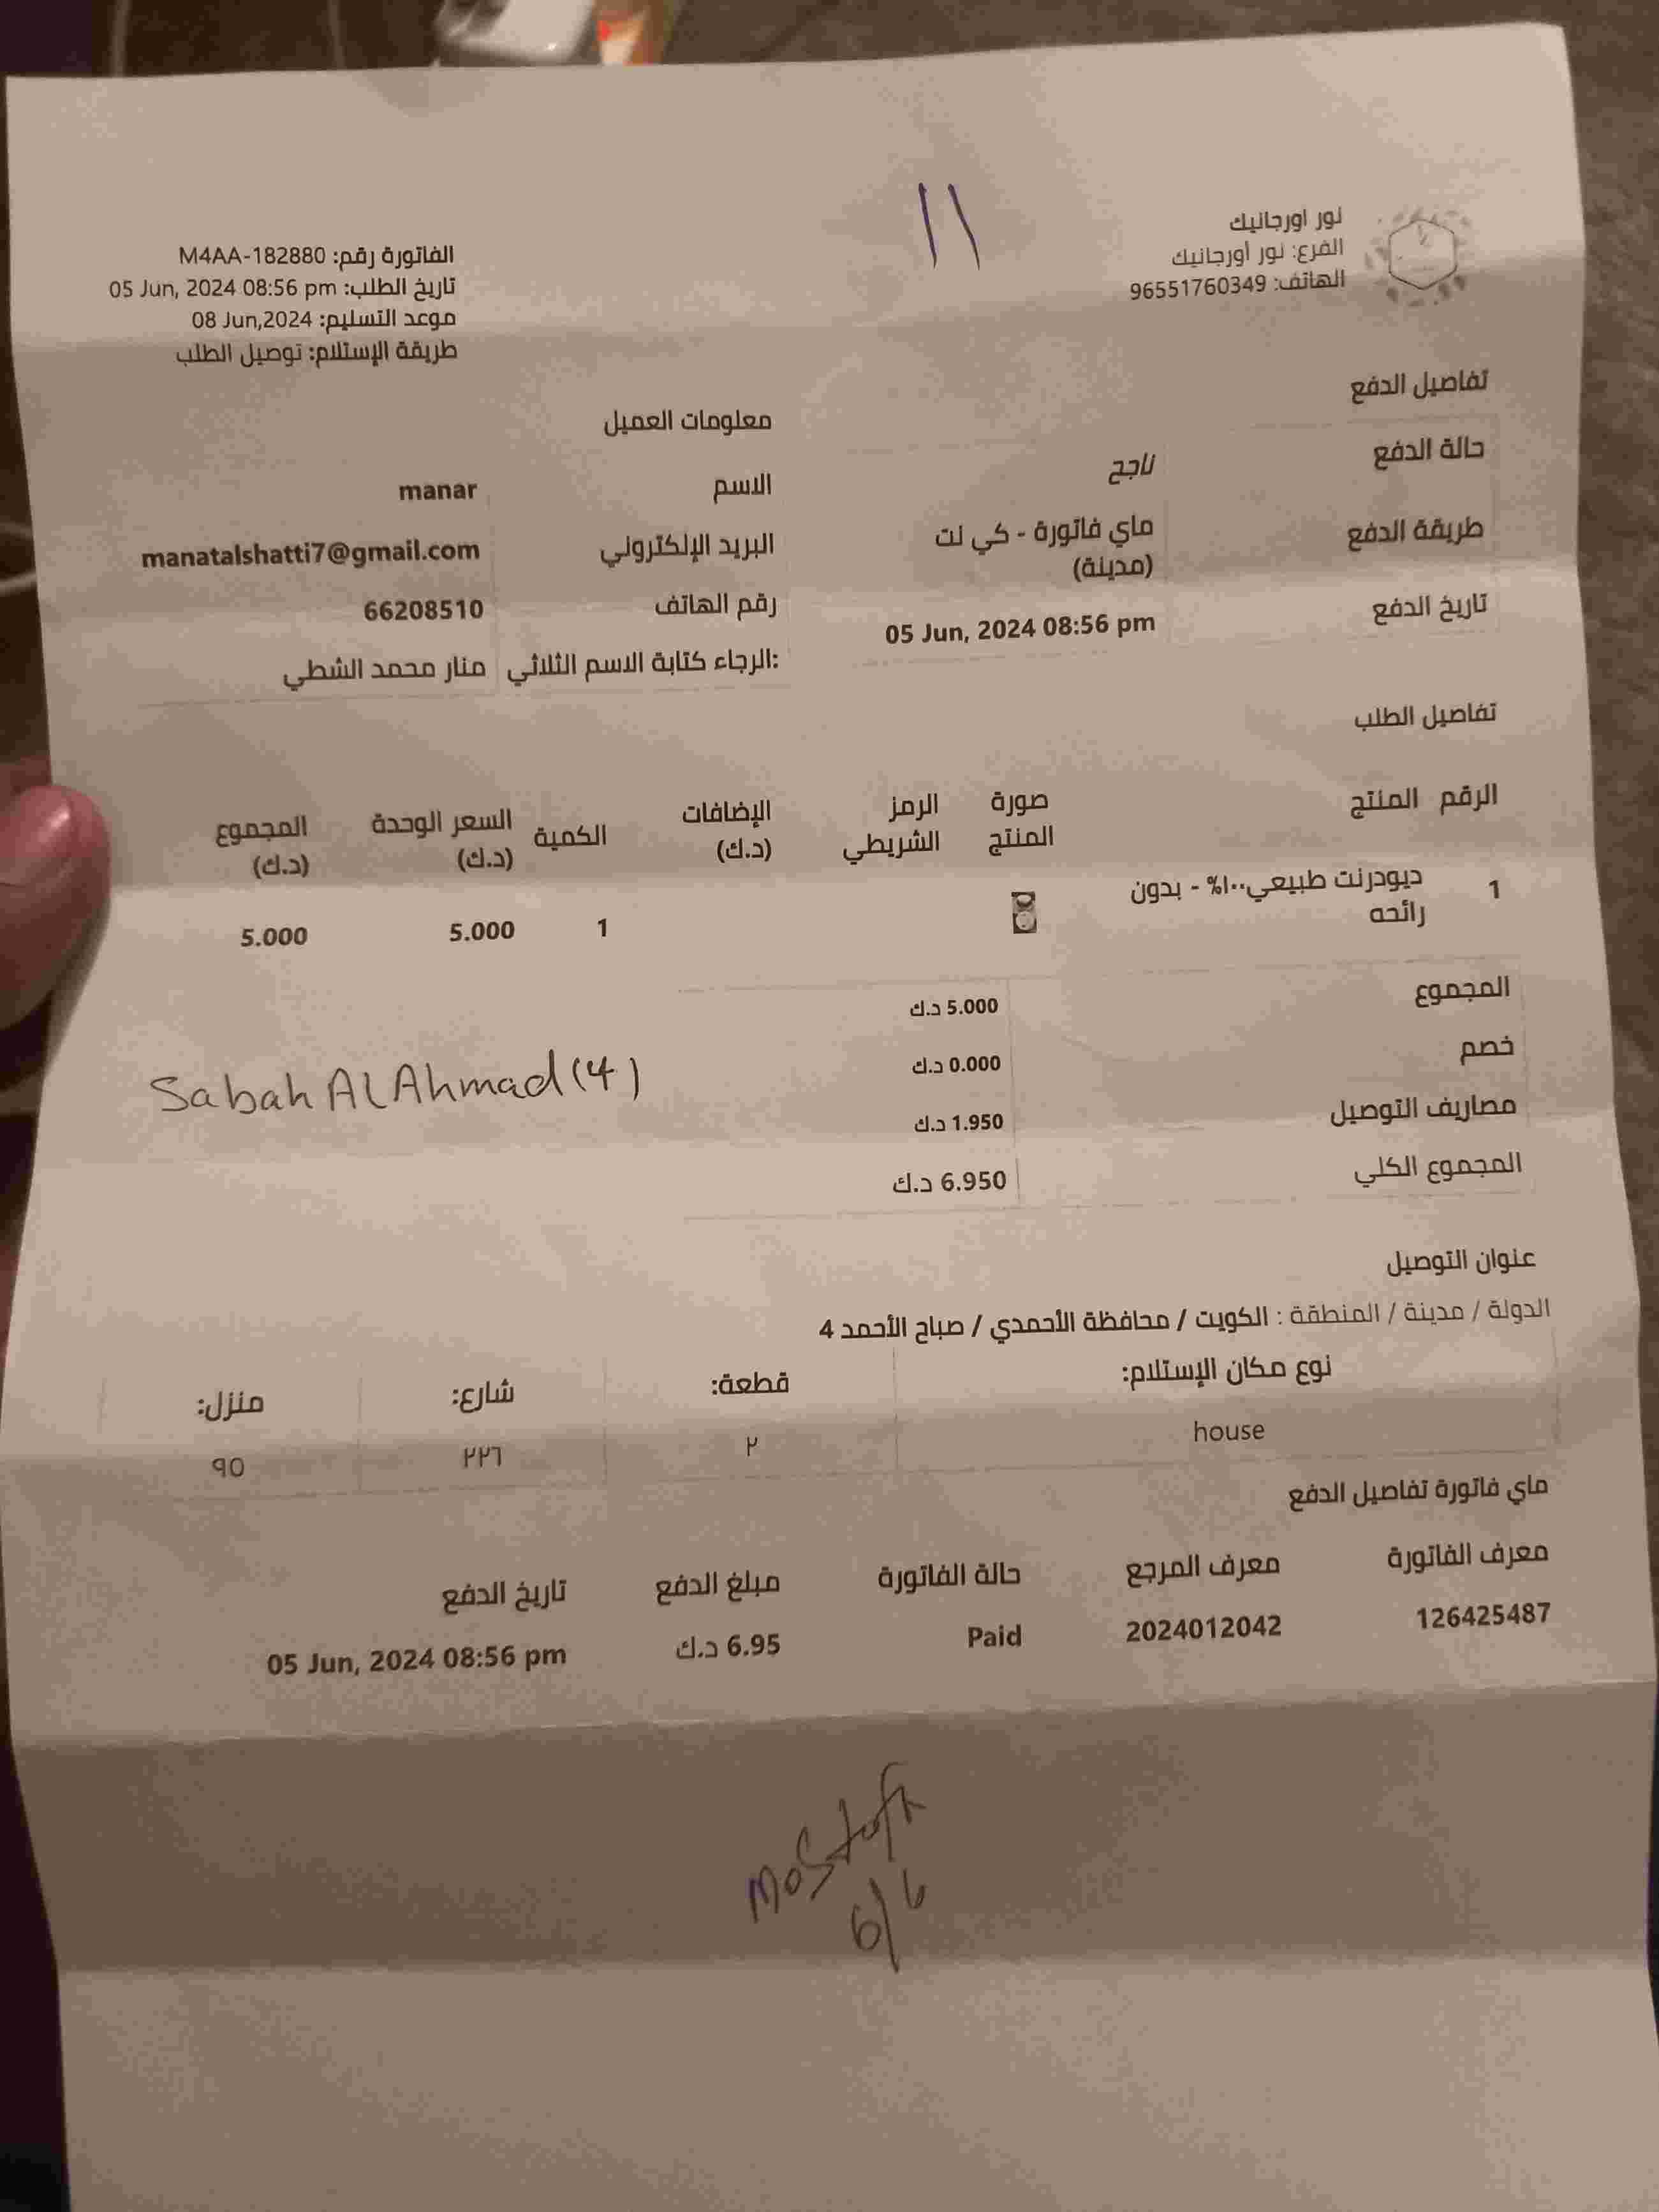 ١١
نور اورجانيك
الفرع: نور أورجانيك
الهاتف: 96551760349
الفاتورة رقم: M4AA-182880
تاريخ الطلب: 05 Jun, 2024 08:56 pm
موعد التسليم: 08 Jun,2024
طريقة الإستلام: توصيل الطلب
تفاصيل الدفع
حالة الدفع ناجح
طريقة الدفع ماي فاتورة - كي نت
(مدينة)
تاريخ الدفع 05 Jun, 2024 08:56 pm
معلومات العميل
الاسم manar
البريد الإلكتروني manatalshatti7@gmail.com
رقم الهاتف 66208510
:الرجاء كتابة الاسم الثلاثي منار محمد الشطي
تفاصيل الطلب
الرقم المنتج صورة الرمز الإضافات الكمية السعر الوحدة المجموع
المنتج الشريطي (د.ك) (د.ك) (د.ك)
1 ديودرنت طبيعي١٠٠% - بدون 1 5.000 5.000
رائحه
المجموع 5.000 د.ك
خصم 0.000 د.ك
مصاريف التوصيل 1.950 د.ك
المجموع الكلي 6.950 د.ك
Sabah Al Ahmad (4)
عنوان التوصيل
الدولة / مدينة / المنطقة : الكويت / محافظة الأحمدي / صباح الأحمد 4
نوع مكان الإستلام: قطعة: شارع: منزل:
house ٢ ٢٢٦ ٩٥
ماي فاتورة تفاصيل الدفع
معرف الفاتورة معرف المرجع حالة الفاتورة مبلغ الدفع تاريخ الدفع
126425487 2024012042 Paid 6.95 د.ك 05 Jun, 2024 08:56 pm
6/6